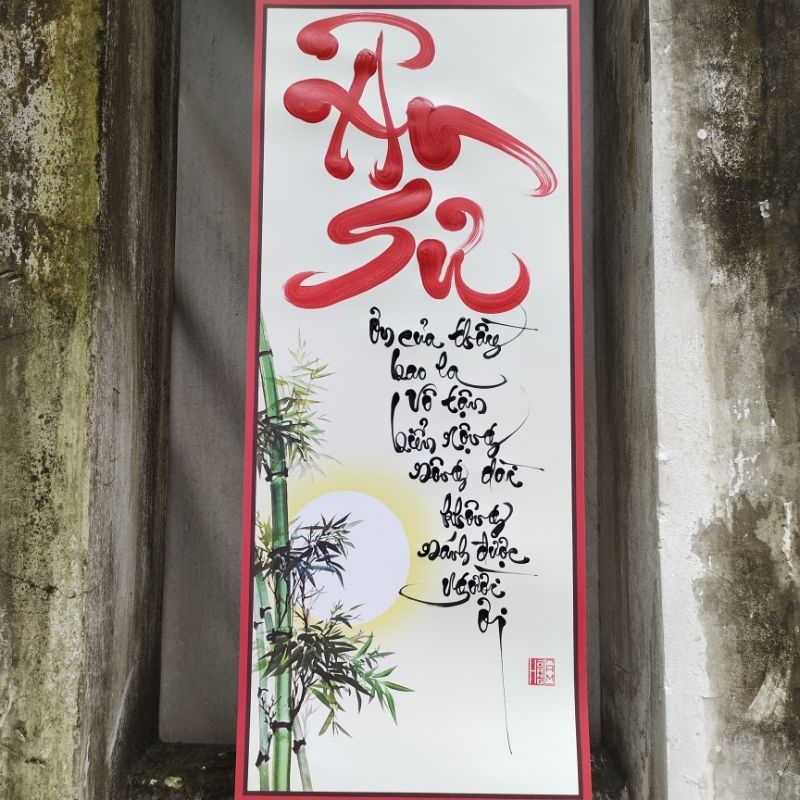 Ân
Sư
Ơn của thầy
bao la
Vô tận
biển rộng
sông dài
không
sánh được
người
ơi